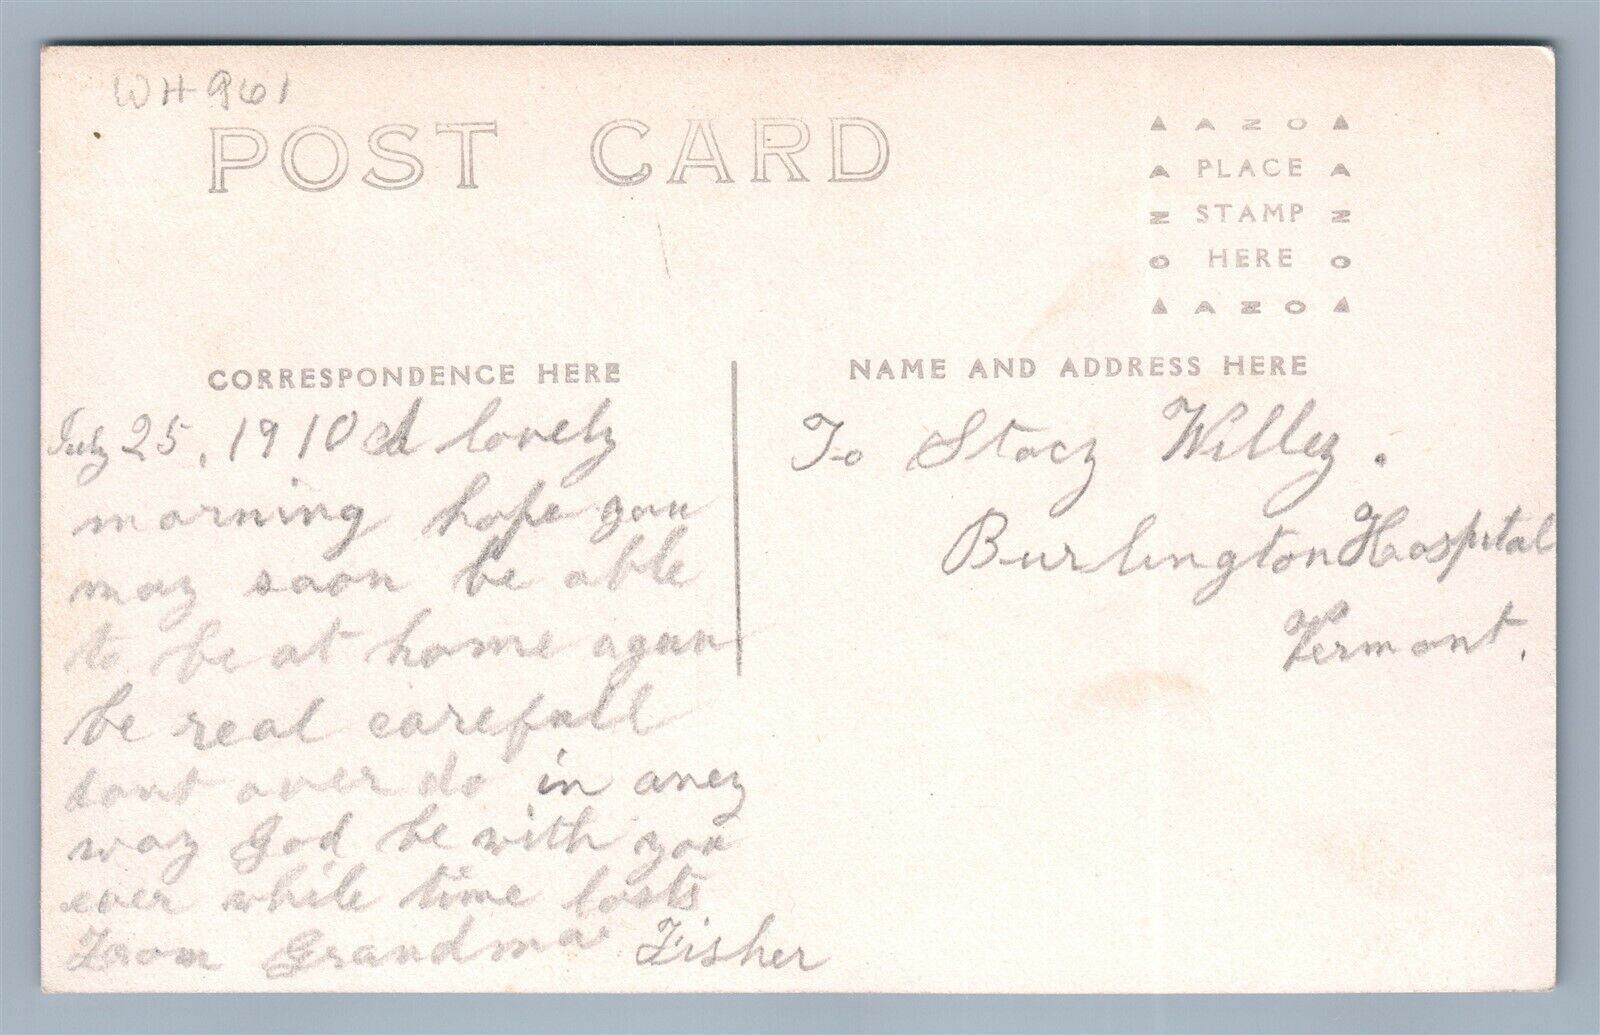 WH961
POST CARD
▲ A Z O ▲
A PLACE A
Z STAMP Z
O HERE O
▲ A Z O ▲
CORRESPONDENCE HERE
July 25, 1910 A lovely
morning hope you
may soon be able
to be at home again
be real carefull
dont over do in aney
way God be with you
ever while time lasts
From Grandma Fisher
NAME AND ADDRESS HERE
To Stacy Willey.
Burlington Haospital
Vermont.